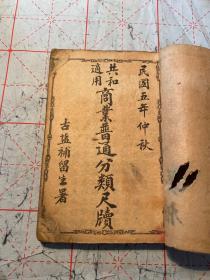 民國五年仲秋
共和適用
商業普通分類尺牘
古盐補留生署